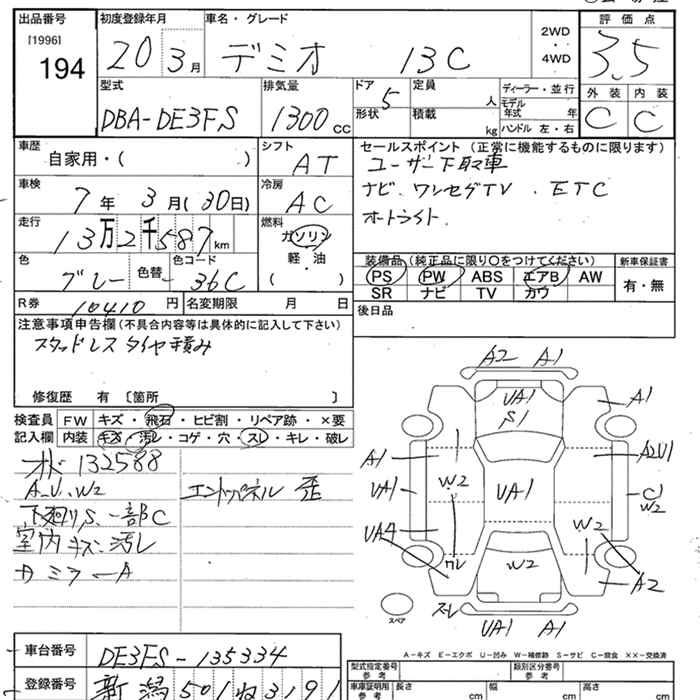 出品番号
[1996]
194
初度登録年月
20年 3月
車名・グレード
デミオ 13C
2WD
・
4WD
評価点
3.5
外装 内装
C C
型式
DBA-DE3FS
排気量
1300 cc
ドア 5
形状
定員 人
積載 kg
ディーラー・並行
モデル年式 年
ハンドル 左・右
車歴
自家用・( )
シフト
AT
車検
7年 3月(30日)
冷房
AC
走行
13万2千587km
燃料
ガソリン
軽・油
( )
色
グレー
色替
・
色コード
36C
R券
10410円
名変期限 月 日
セールスポイント(正常に機能するものに限ります)
ユーザー下取車
ナビ、ワンセグTV . ETC
オートライト.
装備品(純正品に限り○をつけてください)
PS PW ABS エアB AW
SR ナビ TV カワ
新車保証書
有・無
後日品
注意事項申告欄(不具合内容等は具体的に記入して下さい)
スタッドレスタイヤ積み
修復歴 有 〔箇所 〕
検査員記入欄
FW キズ・飛石・ヒビ割・リペア跡・×要
内装 キズ・汚レ・コゲ・穴・スレ・キレ・破レ
132588
A_U、W2
下廻りS、一部C
室内キズ・汚レ
エンドパネル 歪
A2 A1
UA1
S1
A1
A1
A2U1
UA1
W2
UA1
C1
W2
UA4
W2
W2
A2
スレ
UA1 A1
スペア
A-キズ E-エクボ U-凹み W-補修跡 S-サビ C-腐食 XX-交換済
車台番号
DE3FS-135334
登録番号
新潟501ね3191
型式指定番号
参考
類別区分番号
参考
車庫証明用
参考
長さ cm
幅 cm
高さ cm